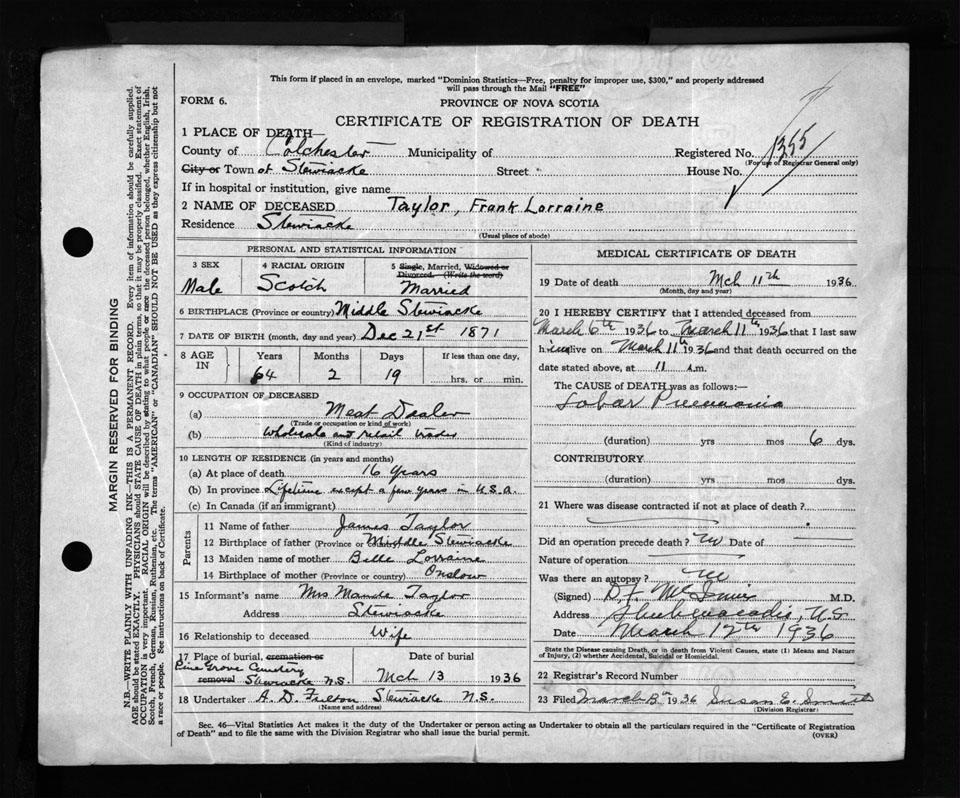 This form if placed in an envelope, marked "Dominion Statistics—Free, penalty for improper use, $300," and properly addressed
will pass through the Mail "FREE"
FORM 6.
PROVINCE OF NOVA SCOTIA
CERTIFICATE OF REGISTRATION OF DEATH
1 PLACE OF DEATH—
County of Colchester Municipality of Registered No. 1355
(For use of Registrar General only)
City or Town of Stewiacke Street House No.
If in hospital or institution, give name
2 NAME OF DECEASED Taylor, Frank Lorraine
Residence Stewiacke
(Usual place of abode)
PERSONAL AND STATISTICAL INFORMATION
3 SEX 4 RACIAL ORIGIN 5 Single, Married, Widowed or Divorced. (Write the word)
Male Scotch Married
6 BIRTHPLACE (Province or country) Middle Stewiacke
7 DATE OF BIRTH (month, day and year) Dec 21st 1871
8 AGE IN Years Months Days If less than one day,
64 2 19 hrs. or min.
9 OCCUPATION OF DECEASED
(a) Meat Dealer
(Trade or occupation or kind of work)
(b) Wholesale and retail trade
(Kind of industry)
10 LENGTH OF RESIDENCE (in years and months)
(a) At place of death 16 years
(b) In province Lifetime except a few years in U.S.A.
(c) In Canada (if an immigrant)
Parents
11 Name of father James Taylor
12 Birthplace of father (Province or country) Middle Stewiacke
13 Maiden name of mother Belle Lorraine
14 Birthplace of mother (Province or country) Onslow
15 Informant's name Mrs Maude Taylor
Address Stewiacke
16 Relationship to deceased Wife
17 Place of burial, cremation or removal Date of burial
Pine Grove Cemetery
Stewiacke N.S. Mch 13 1936
18 Undertaker A. D. Fulton Stewiacke N.S.
(Name and address)
MEDICAL CERTIFICATE OF DEATH
19 Date of death Mch 11th 1936
(Month, day and year)
20 I HEREBY CERTIFY that I attended deceased from
March 6th 1936 to March 11th 1936 that I last saw
him alive on March 11th 1936 and that death occurred on the
date stated above, at 11 A.M.
The CAUSE of DEATH was as follows:—
Lobar Pneumonia
(duration) yrs mos 6 dys.
CONTRIBUTORY
(duration) yrs mos dys.
21 Where was disease contracted if not at place of death?
Did an operation precede death? No Date of
Nature of operation
Was there an autopsy? No
(Signed) D.F. M.D.
Address Shubenacadie, N.S.
Date March 12th 1936
State the Disease causing Death, or in death from Violent Causes, state (1) Means and Nature
of Injury, (2) whether Accidental, Suicidal or Homicidal.
22 Registrar's Record Number
23 Filed March 13th 1936 Susan E. Smith
(Division Registrar)
Sec. 46—Vital Statistics Act makes it the duty of the Undertaker or person acting as Undertaker to obtain all the particulars required in the "Certificate of Registration
of Death" and to file the same with the Division Registrar who shall issue the burial permit.
(OVER)
MARGIN RESERVED FOR BINDING
N.B.—WRITE PLAINLY WITH UNFADING INK—THIS IS A PERMANENT RECORD. Every item of information should be carefully supplied.
AGE should be stated EXACTLY. PHYSICIANS should STATE CAUSE OF DEATH in plain terms, so that it may be properly classified. Exact statement of
OCCUPATION is very important. RACIAL ORIGIN will be described by stating to what people or race the deceased person belonged, whether English, Irish,
Scotch, French, German, Russian, Ruthenian, etc. The terms "AMERICAN" or "CANADIAN" SHOULD NOT BE USED as they express citizenship but not
a race or people. See instructions on back of Certificate.